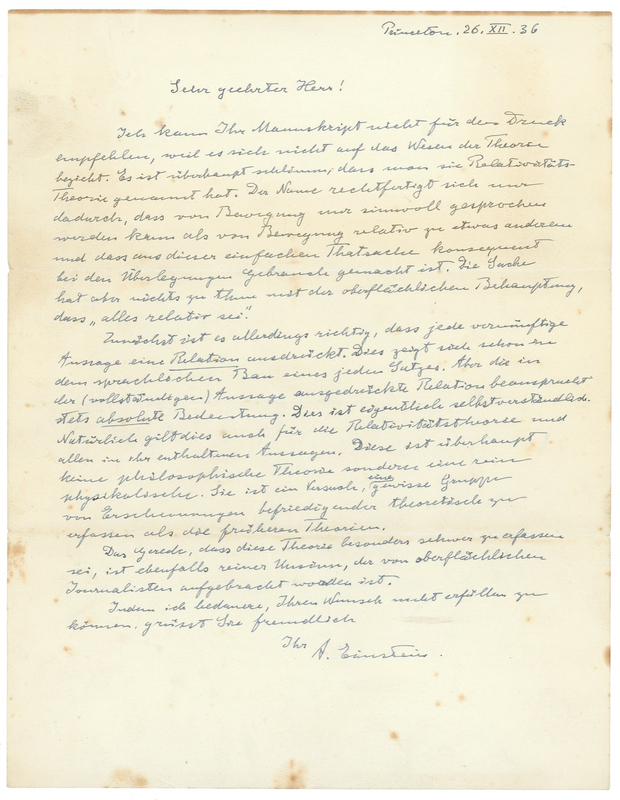 Princeton. 26. XII. 36
Sehr geehrter Herr!
Ich kann Ihr Manuskript nicht für den Druck
empfehlen, weil es sich nicht auf das Wesen der Theorie
bezieht. Es ist überhaupt schlimm, dass man sie Relativitäts-
Theorie genannt hat. Der Name rechtfertigt sich nur
dadurch, dass von Bewegung nur sinnvoll gesprochen
werden kann als von Bewegung relativ zu etwas anderem
und dass aus dieser einfachen Thatsache konsequent
bei den Überlegungen Gebrauch gemacht ist. Die Sache
hat aber nichts zu thun mit der oberflächlichen Behauptung,
dass „alles relativ sei".
Zunächst ist es allerdings richtig, dass jede vernünftige
Aussage eine Relation ausdrückt. Dies zeigt sich schon in
dem sprachlichen Bau eines jeden Satzes. Aber die in
der (vollständigen) Aussage ausgedrückte Relation beansprucht
stets absolute Bedeutung. Dies ist eigentlich selbstverständlich.
Natürlich gilt dies auch für die Relativitätstheorie und
allen in ihr enthaltenen Aussagen. Diese ist überhaupt
keine philosophische Theorie sondern eine rein
physikalische. Sie ist ein Versuch, eine gewisse Gruppe
von Erscheinungen befriedigender theoretisch zu
erfassen als die früheren Theorien.
Das Gerede, dass diese Theorie besonders schwer zu erfassen
sei, ist ebenfalls reiner Unsinn, der von oberflächlichen
Journalisten aufgebracht worden ist.
Indem ich bedauere, Ihren Wunsch nicht erfüllen zu
können, grüsst Sie freundlich
Ihr A. Einstein.